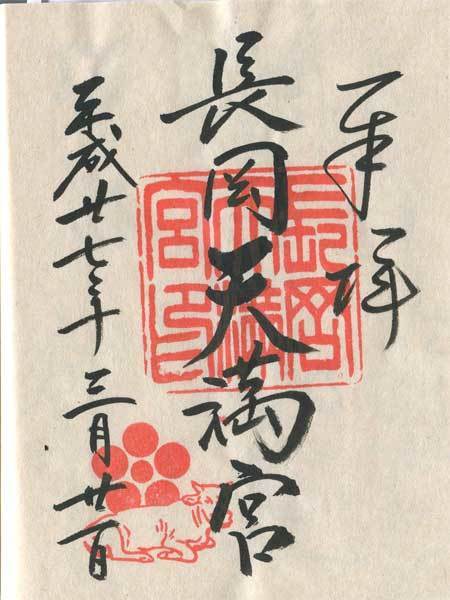 奉拝
長岡天満宮
平成廿七年三月廿一日
長岡
天満
宮印